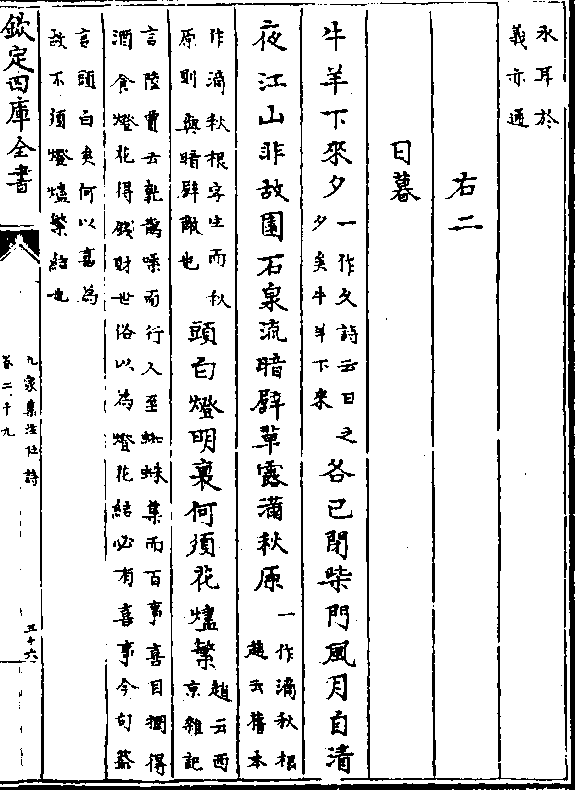 永耳於
義亦通
右二
日暮
牛羊下來夕
一作久詩云日之
夕矣牛羊下來
各已閉柴門風月自清
夜江山非故園石泉流暗壁草露滿秋原
一作滴秋根
趙云舊本
作滴秋根字生而秋
原則與暗壁敵也
頭白燈明裏何須花燼繁
趙云西
京雜記
言陸賈云乾鵲噪而行人至蜘蛛集而百事喜目瞤得
酒食燈花得錢財世俗以為燈花結必有喜事今句蓋
言頭白矣何以喜為
故不須燈燼繁結也
欽定四庫全書
九家集注杜詩
卷二十九
三十六